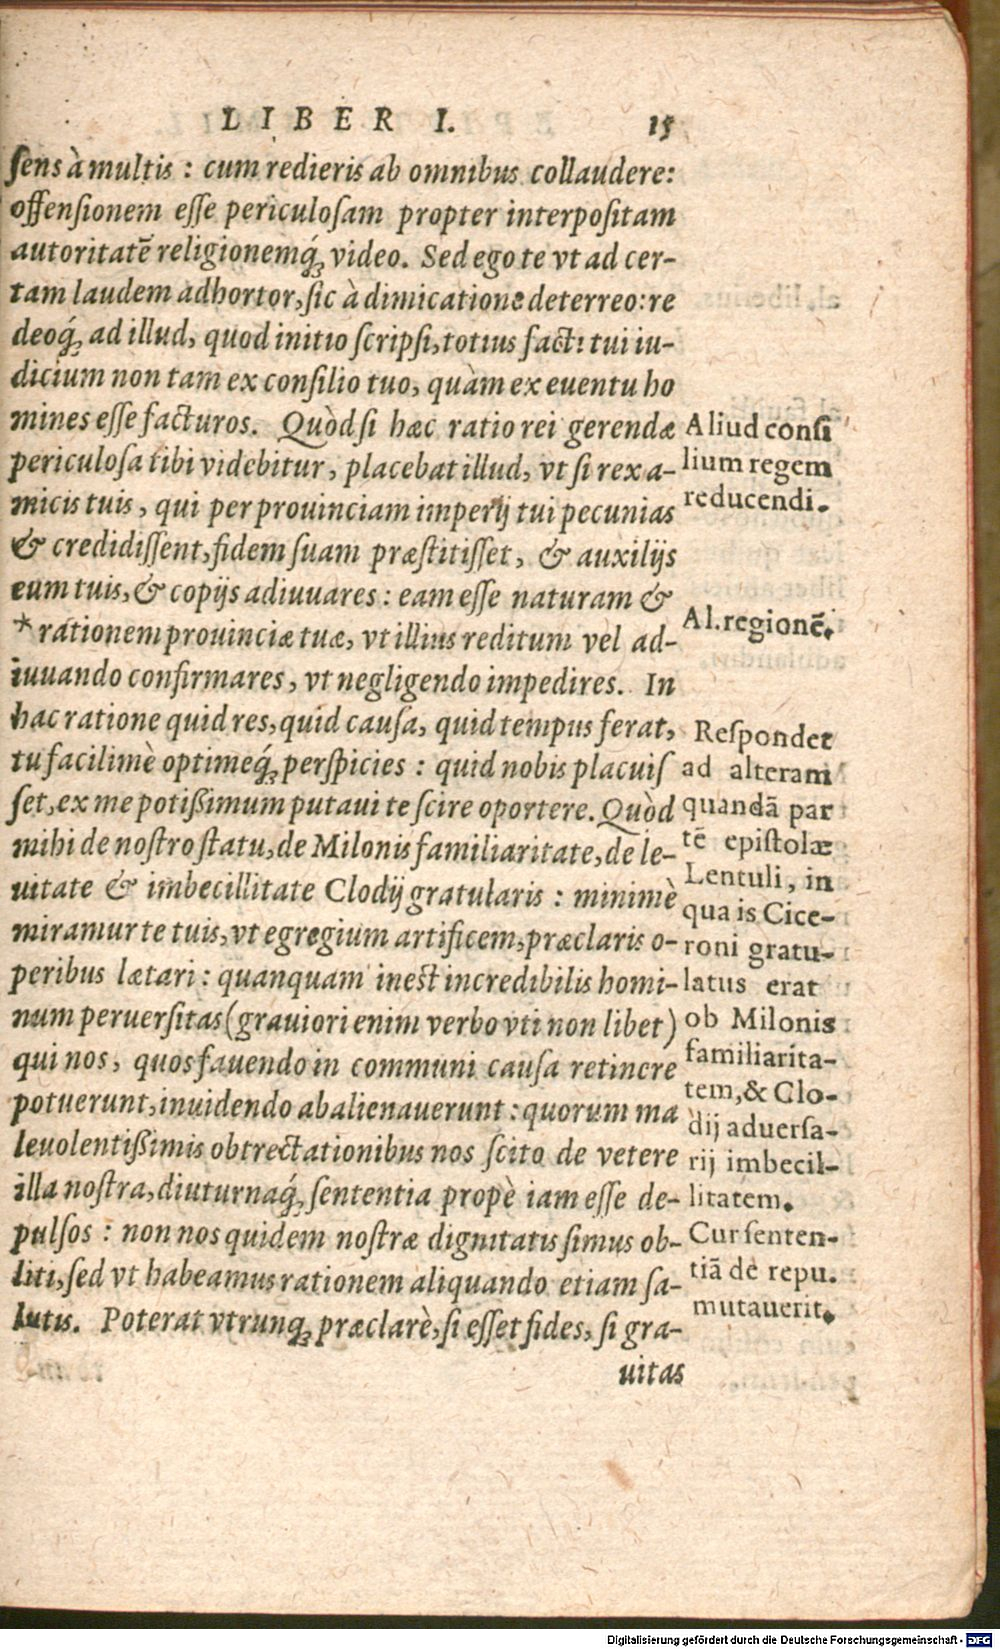 LIBER I. 15
sens à multis : cum redieris ab omnibus collaudere:
offensionem esse periculosam propter interpositam
autoritatẽ religionemq́; video. Sed ego te vt ad cer-
tam laudem adhortor, sic à dimicatione deterreo: re
deoq́; ad illud, quod initio scripsi, totius facti tui iu-
dicium non tam ex consilio tuo, quàm ex euentu ho
mines esse facturos. Quòd si hæc ratio rei gerendæ
periculosa tibi videbitur, placebat illud, vt si rex a-
micis tuis, qui per prouinciam imperij tui pecunias
& credidissent, fidem suam præstitisset, & auxilijs
eum tuis, & copijs adiuuares : eam esse naturam &
* rationem prouinciæ tuæ, vt illius reditum vel ad-
iuuando confirmares, vt negligendo impedires. In
hac ratione quid res, quid causa, quid tempus ferat,
tu facilimè optimeq́; perspicies : quid nobis placuis
set, ex me potißimum putaui te scire oportere. Quòd
mihi de nostro statu, de Milonis familiaritate, de le-
uitate & imbecillitate Clodij gratularis : minimè
miramur te tuis, vt egregium artificem, præclaris o-
peribus lætari : quanquam inest incredibilis homi-
num peruersitas (grauiori enim verbo vti non libet)
qui nos, quos fauendo in communi causa retincre
potuerunt, inuidendo abalienauerunt : quorum ma
leuolentißimis obtrectationibus nos scito de vetere
illa nostra, diuturnaq́; sententia propè iam esse de-
pulsos : non nos quidem nostræ dignitatis simus ob-
liti, sed vt habeamus rationem aliquando etiam sa-
lutis. Poterat vtrunq; præclarè, si esset fides, si gra-
uitas
Aliud consi
lium regem
reducendi.
Al. regionẽ.
Respondet
ad alteram
quandã par
tẽ epistolæ
Lentuli, in
qua is Cice-
roni gratu-
latus erat
ob Milonis
familiarita-
tem, & Clo-
dij aduersa-
rij imbecil-
litatem.
Cur senten-
tiã de repu.
mutauerit.
Digitalisierung gefördert durch die Deutsche Forschungsgemeinschaft - DFG